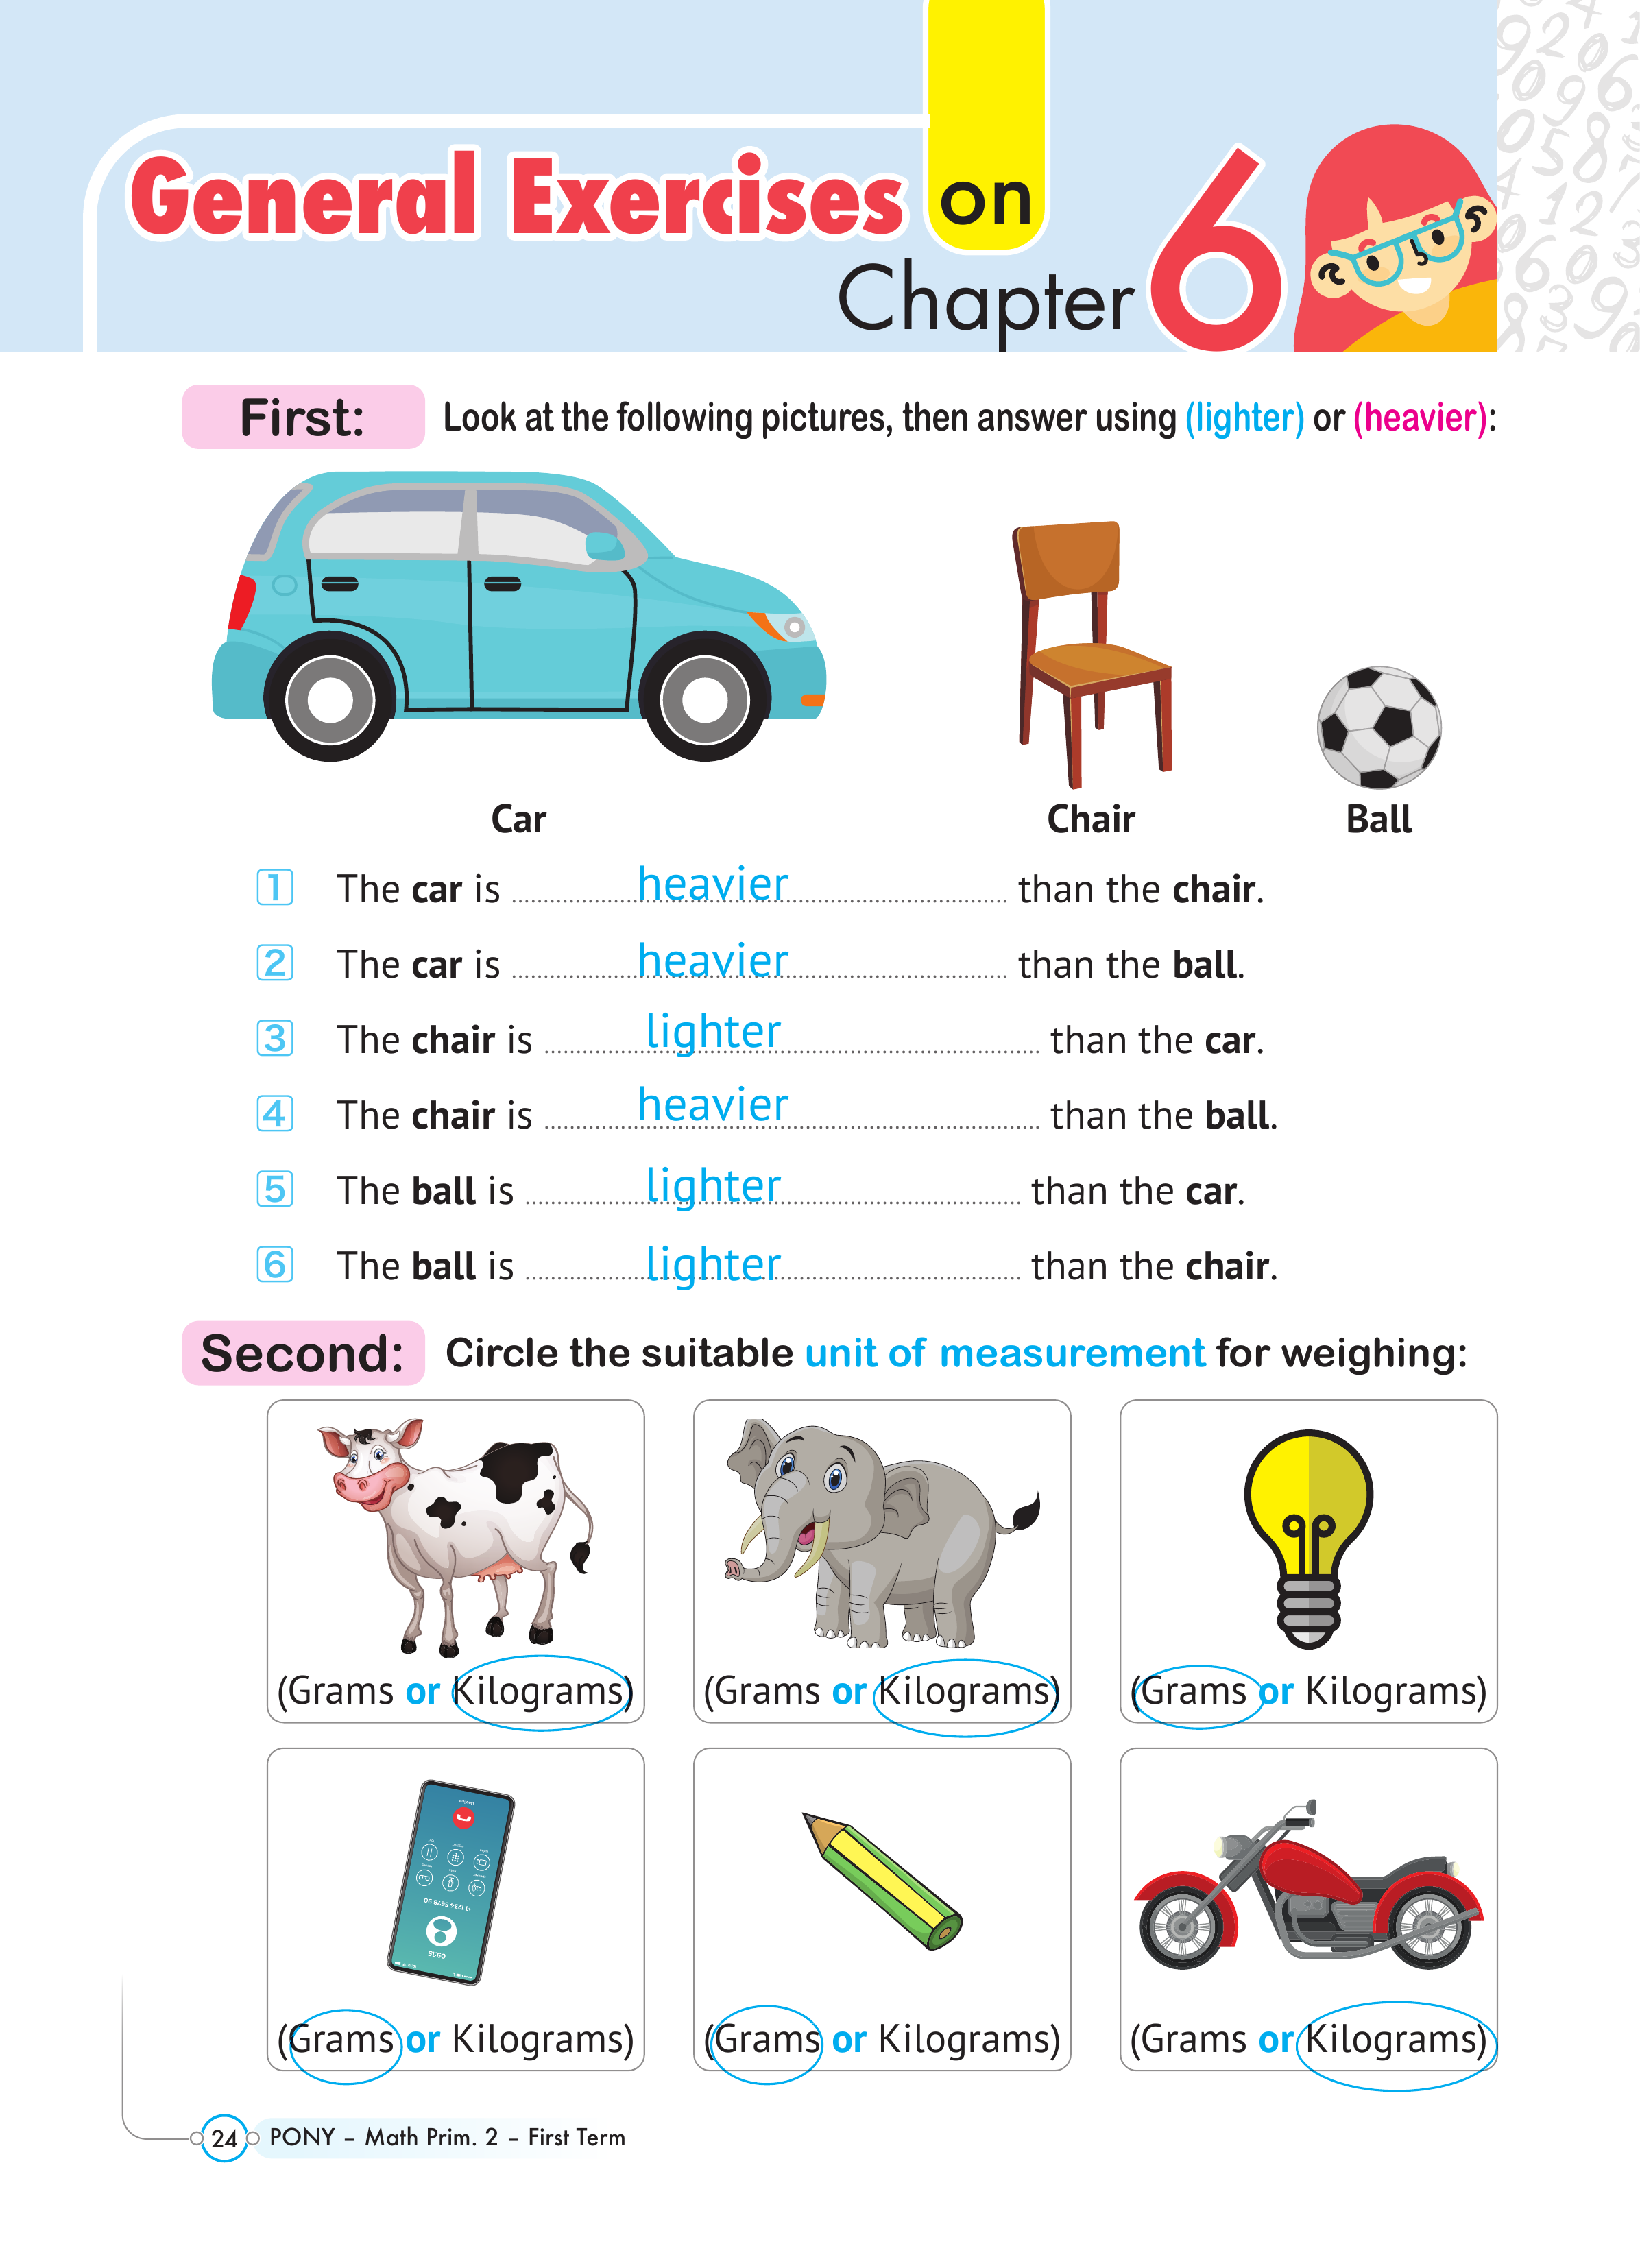 General Exercises on
Chapter 6
First: Look at the following pictures, then answer using (lighter) or (heavier):
Car Chair Ball
1 The car is heavier than the chair.
2 The car is heavier than the ball.
3 The chair is lighter than the car.
4 The chair is heavier than the ball.
5 The ball is lighter than the car.
6 The ball is lighter than the chair.
Second: Circle the suitable unit of measurement for weighing:
(Grams or Kilograms) (Grams or Kilograms) (Grams or Kilograms)
+1 1234 5678 90
09:15
(Grams or Kilograms) (Grams or Kilograms) (Grams or Kilograms)
24 PONY – Math Prim. 2 – First Term